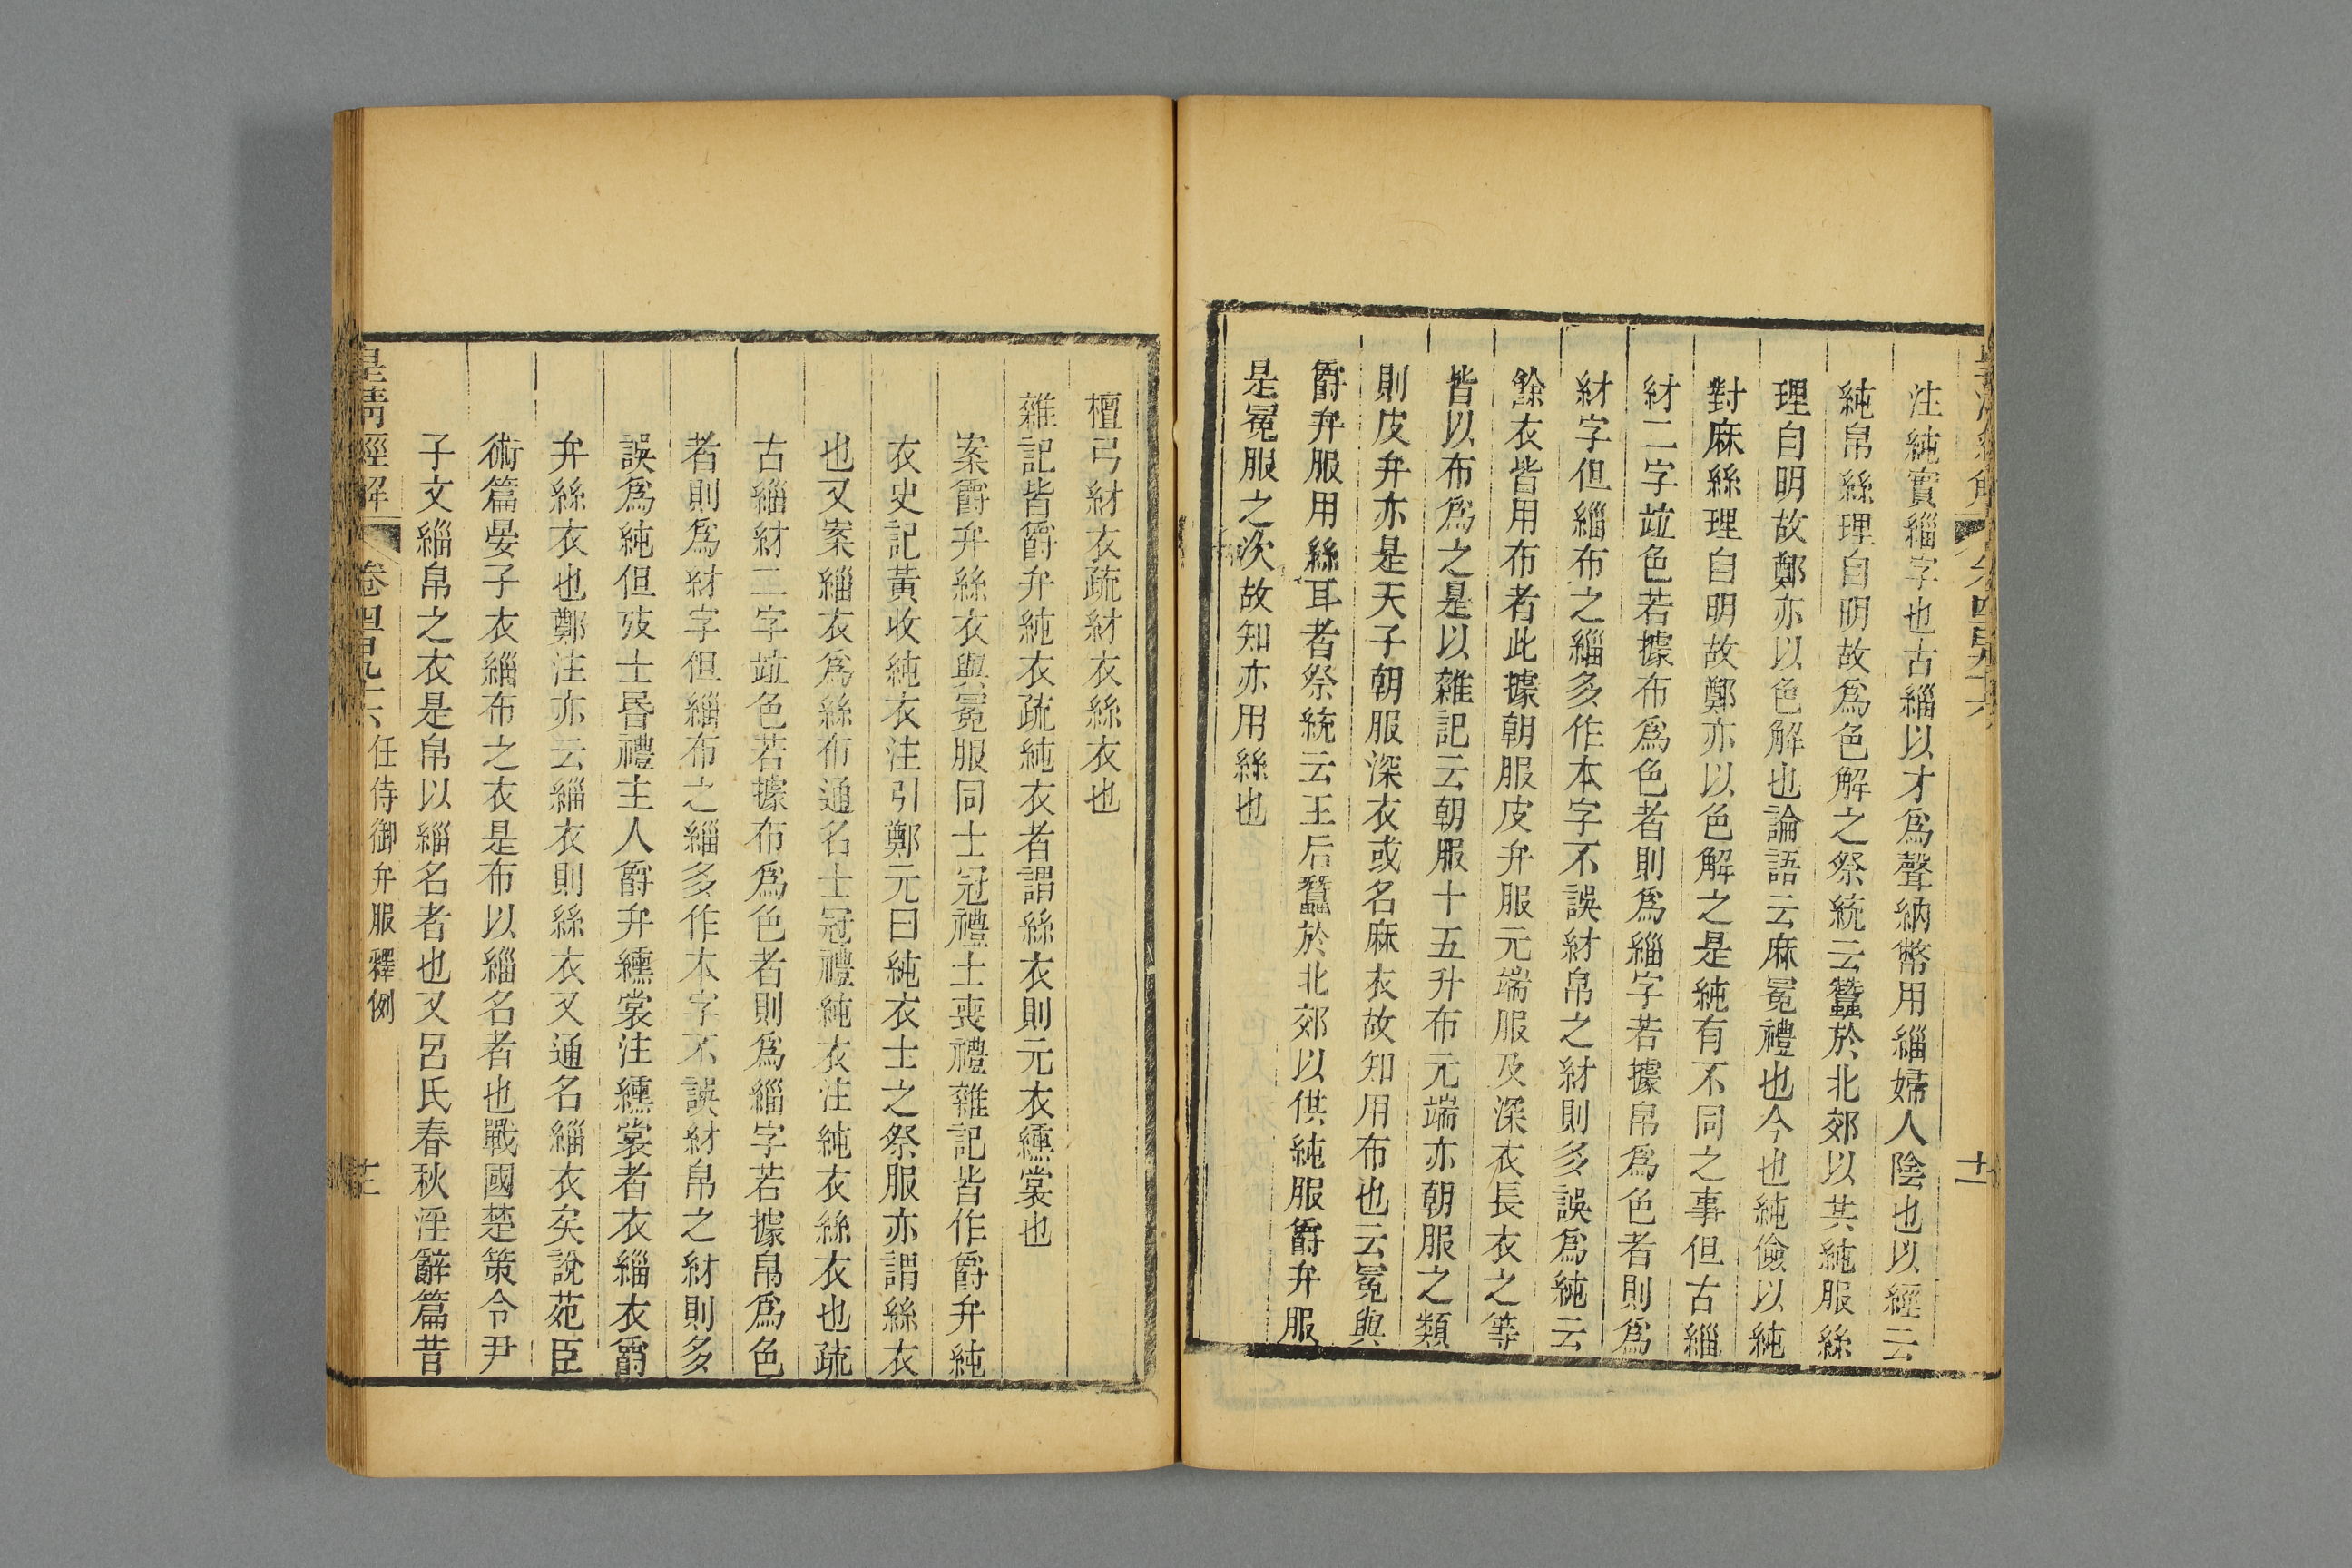 注純實緇字也古緇以才爲聲納幣用緇婦人陰也以經云
純帛絲理自明故爲色解之祭統云蠶於北郊以共純服絲
理自明故鄭亦以色解也論語云麻冕禮也今也純儉以純
對麻絲理自明故鄭亦以色解之是純有不同之事但古緇
紂二字竝色若據布爲色者則爲緇字若據帛爲色者則爲
紂字但緇布之緇多作本字不誤紂帛之紂則多誤爲純云
餘衣皆用布者此據朝服皮弁服元端服及深衣長衣之等
皆以布爲之是以雜記云朝服十五升布元端亦朝服之類
則皮弁亦是天子朝服深衣或名麻衣故知用布也云冕與
爵弁服用絲耳者祭統云王后蠶於北郊以供純服爵弁服
是冕服之次故知亦用絲也
檀弓紂衣疏紂衣絲衣也
雜記皆爵弁純衣疏純衣者謂絲衣則元衣纁裳也
案爵弁絲衣與冕服同士冠禮士喪禮雜記皆作爵弁純
衣史記黃收純衣注引鄭元曰純衣士之祭服亦謂絲衣
也又案緇衣爲絲布通名士冠禮純衣注純衣絲衣也疏
古緇紂二字竝色若據布爲色者則爲緇字若據帛爲色
者則爲紂字但緇布之緇多作本字不誤紂帛之紂則多
誤爲純但攷士昏禮主人爵弁纁裳注纁裳者衣緇衣爵
弁絲衣也鄭注亦云緇衣則絲衣又通名緇衣矣說苑臣
術篇晏子衣緇布之衣是布以緇名者也戰國楚策令尹
子文緇帛之衣是帛以緇名者也又呂氏春秋淫辭篇昔
皇清經解 卷四百九十六 任侍御弁服釋例